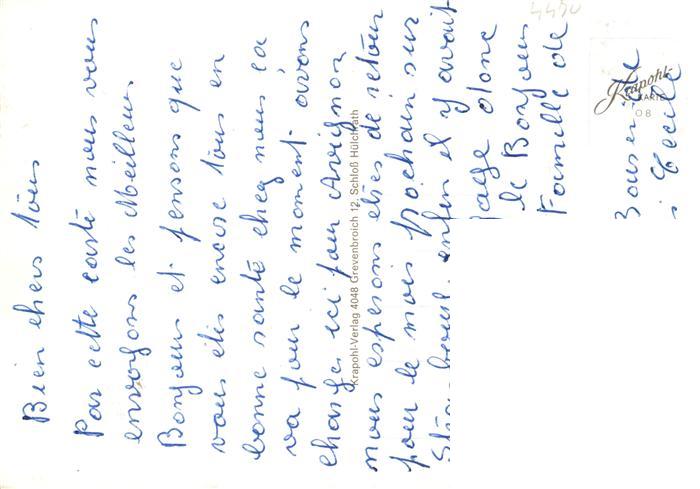 Bien chers Tous
Par cette carte nous vous
envoyons les Meilleurs
Bonjours et pensons que
vous êtes encore tous en
bonne santé chez nous ça
va pour le moment avons
changé ici pour Avignon
nous esperons etres de retour
pour le mois prochain sur
enfin il y avait
donc
le Bonjour
Famille de
Cecile
Krapohl-Verlag 4048 Grevenbroich 12, Schloß Hülchrath
Krapohl-
KARTE
08
4490